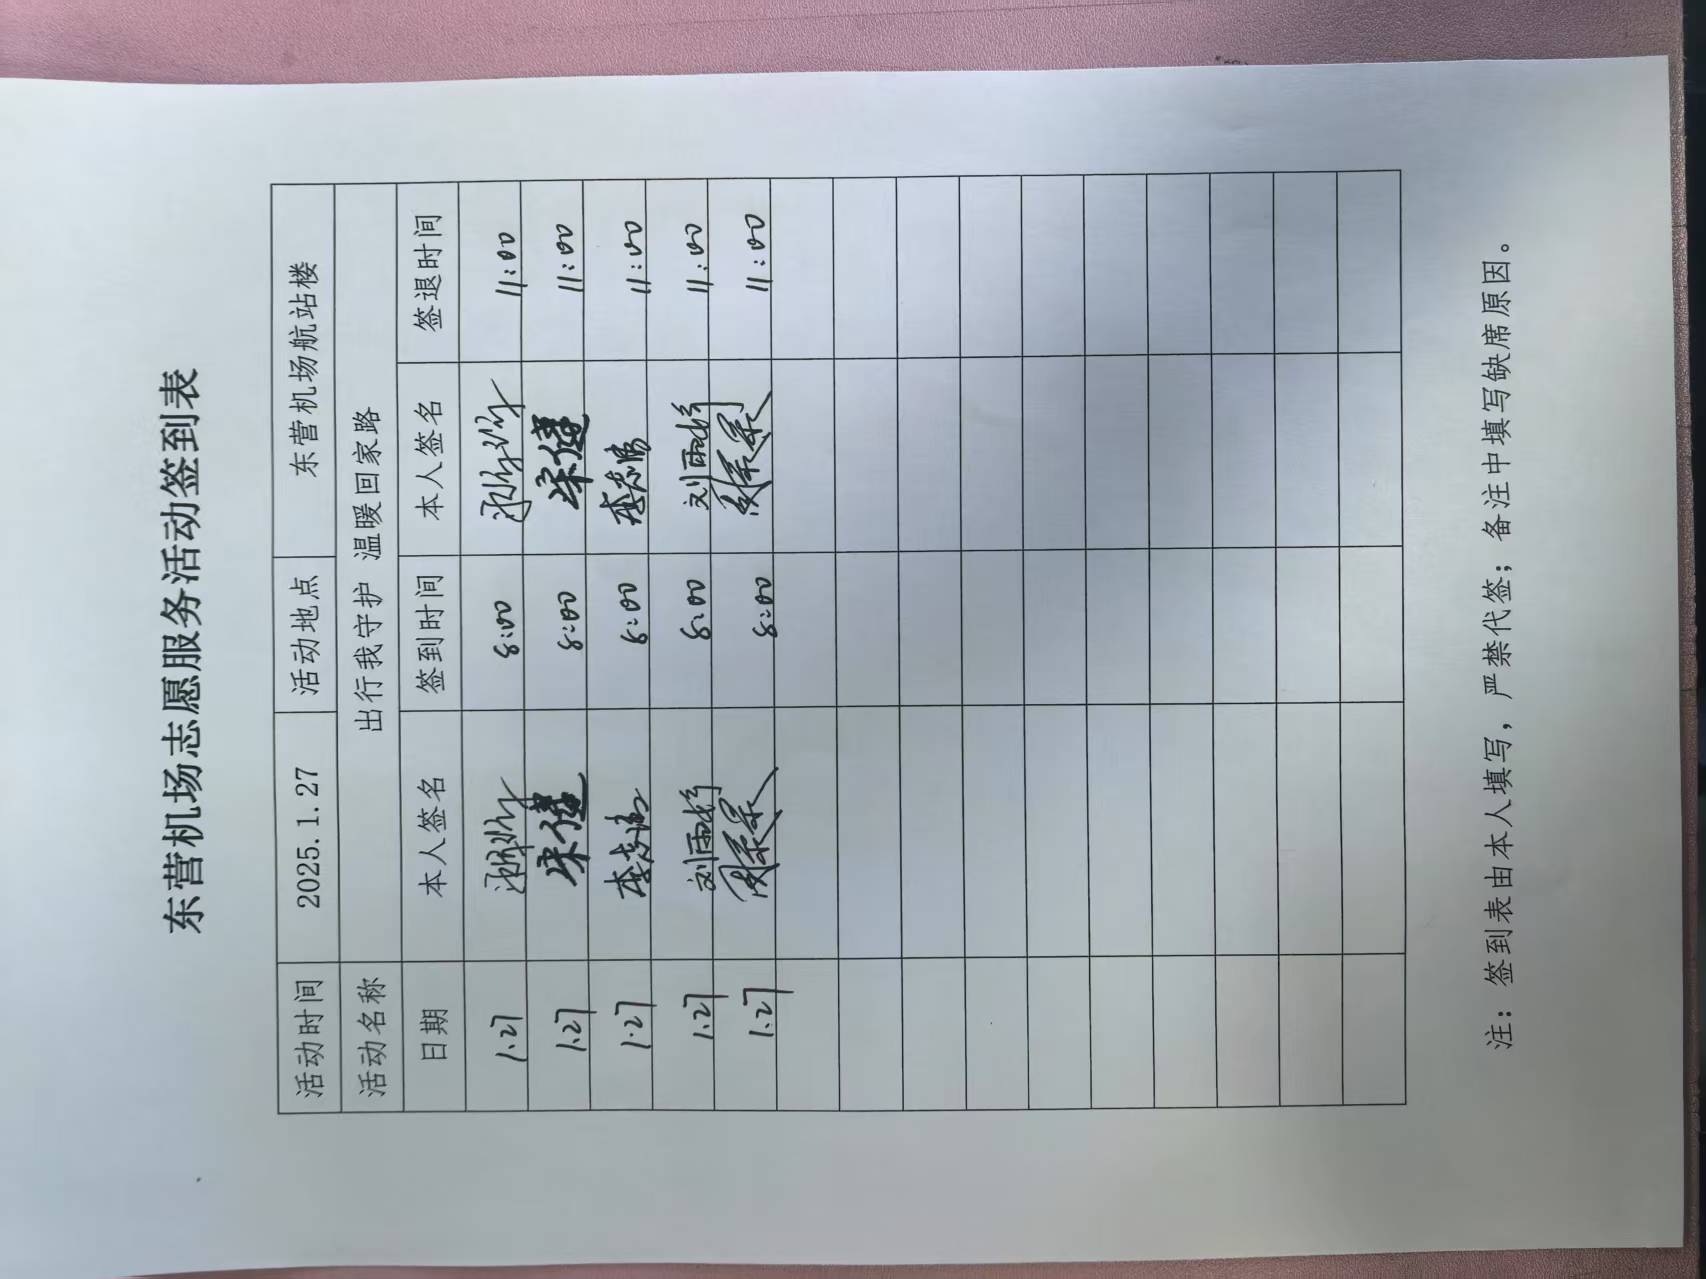 东营机场志愿服务活动签到表
活动时间 2025.1.27 活动地点 东营机场航站楼
活动名称 出行我守护 温暖回家路
日期 本人签名 签到时间 本人签名 签退时间
1.27 8:00 11:00
1.27 宋健 8:00 宋健 11:00
1.27 8:00 11:00
1.27 8:00 11:00
1.27 8:00 11:00
注：签到表由本人填写，严禁代签；备注中填写缺席原因。